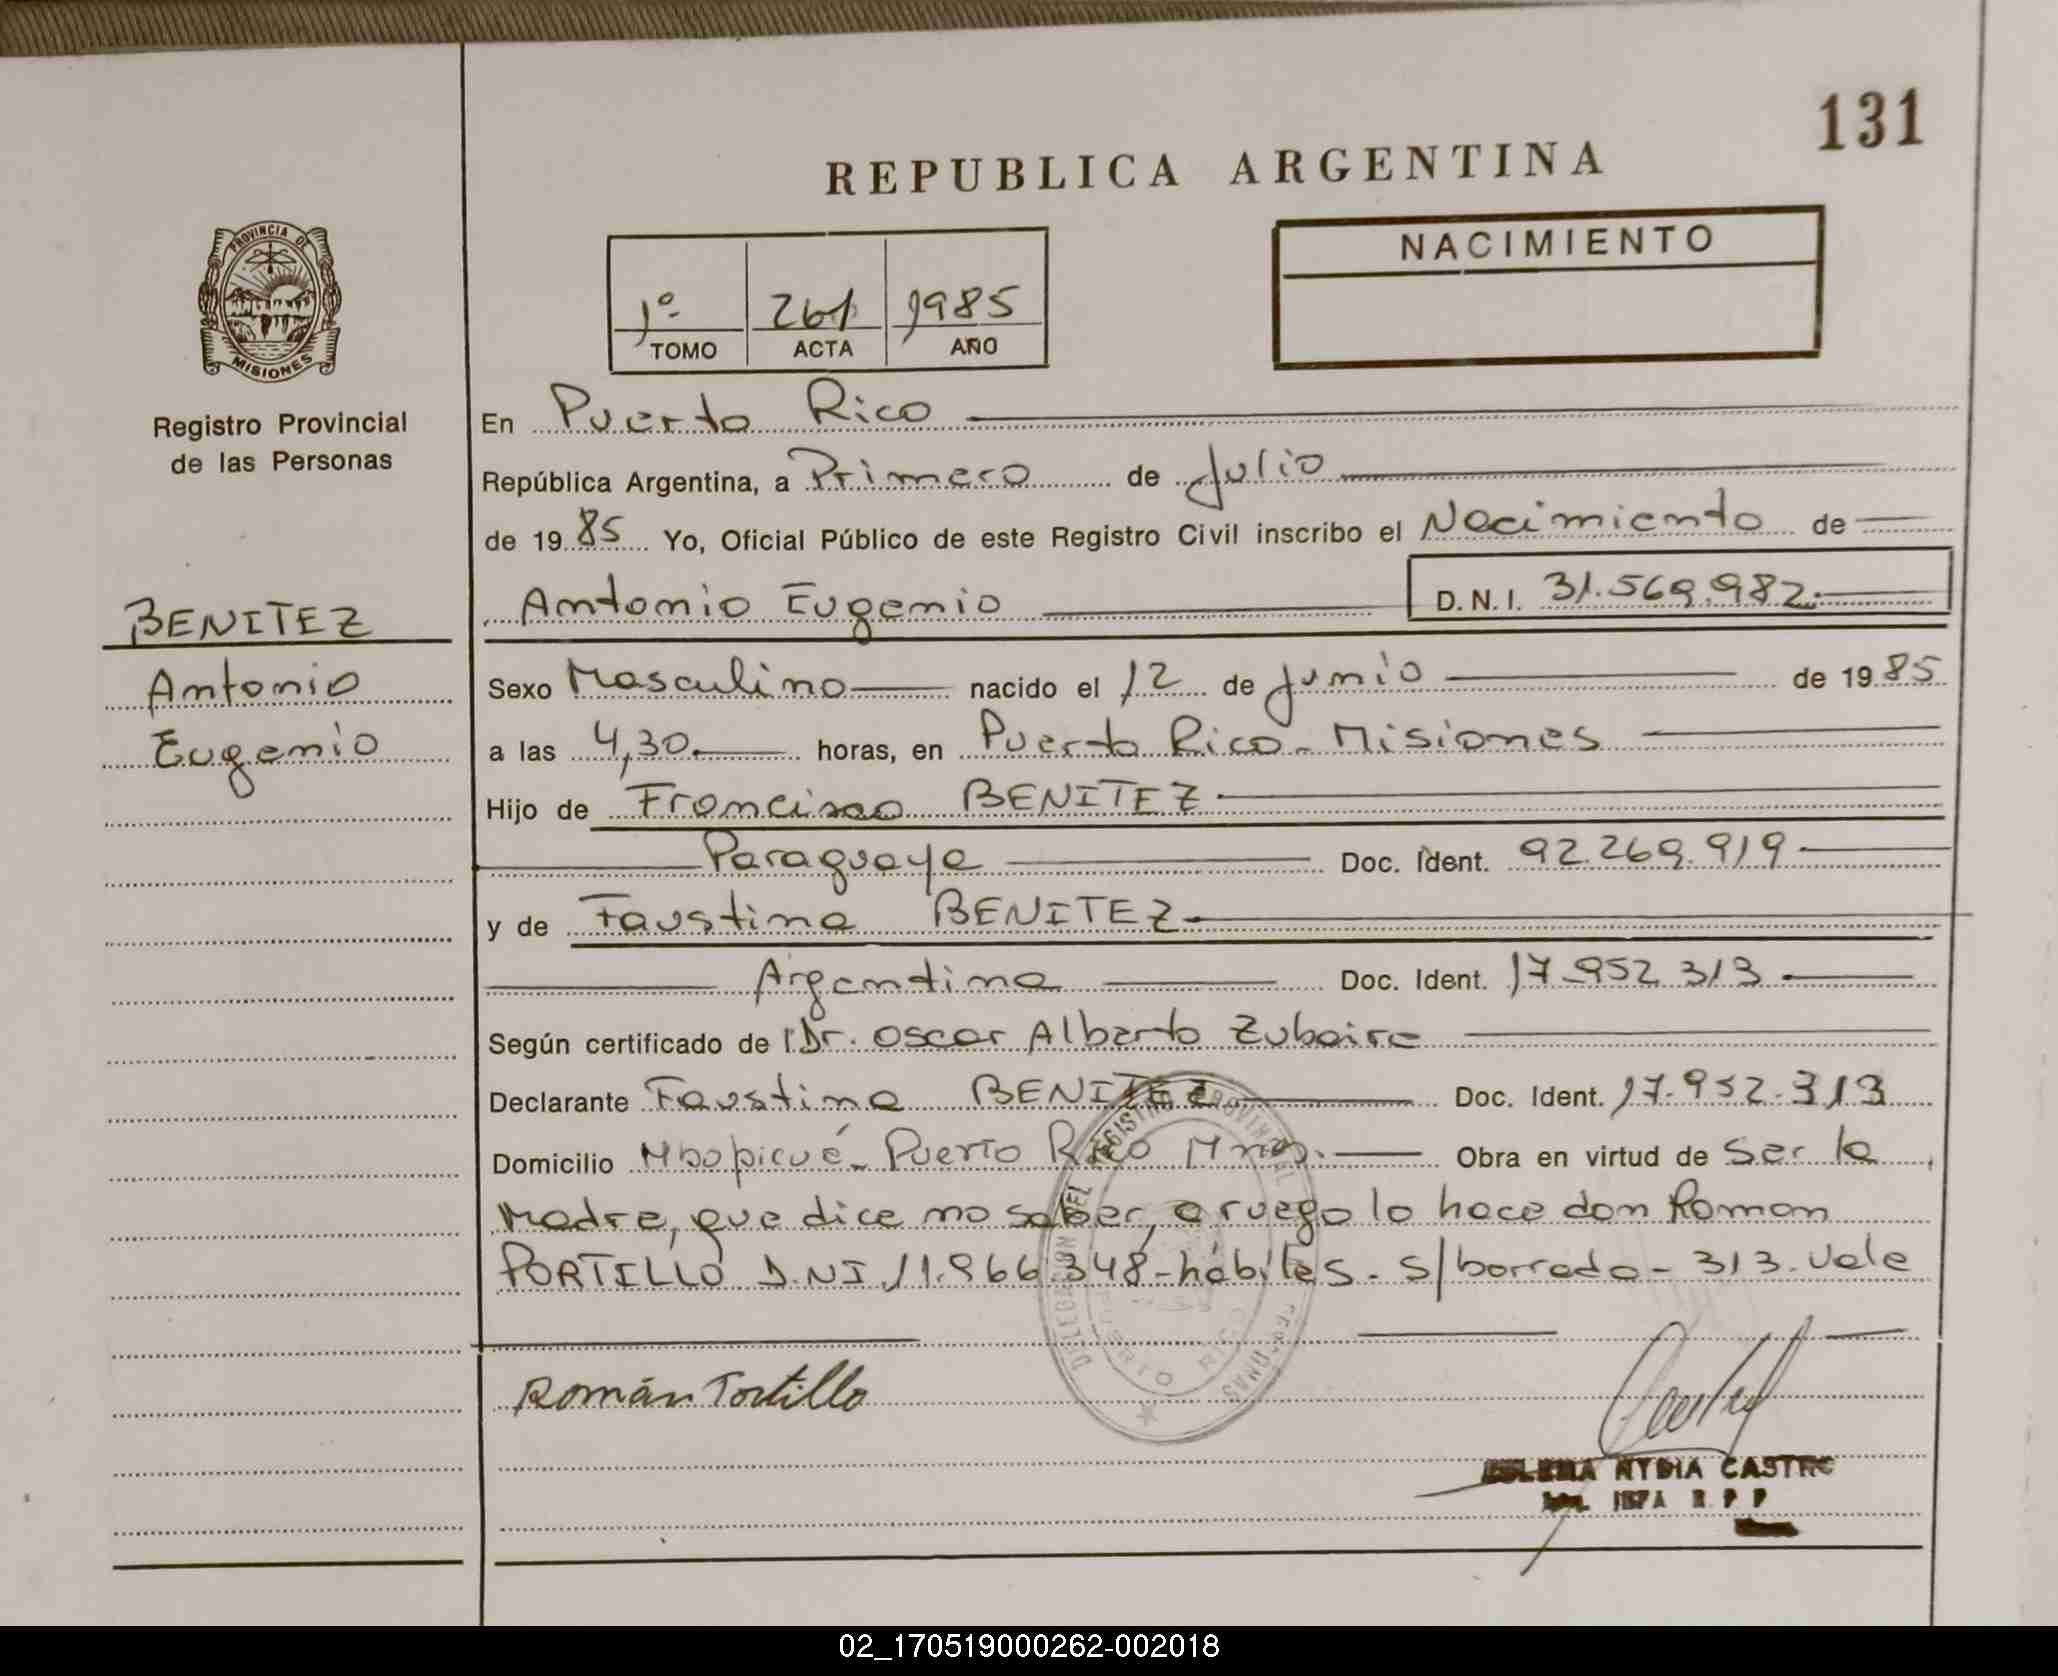 131
REPUBLICA ARGENTINA
PROVINCIA DE
MISIONES
1º 261 1985
TOMO ACTA AÑO
NACIMIENTO
Registro Provincial
de las Personas
BENITEZ
Antonio
Eugenio
En Puerto Rico
República Argentina, a Primero de Julio
de 1985 Yo, Oficial Público de este Registro Civil inscribo el Nacimiento de
Antonio Eugenio D.N.I. 31.569.982.
Sexo Masculino nacido el 12 de Junio de 1985
a las 4,30. horas, en Puerto Rico - Misiones
Hijo de Francisco BENITEZ
Paraguaya Doc. Ident. 92.269.919
y de Faustina BENITEZ
Argentina Doc. Ident. 17.952.313
Según certificado de Dr. Oscar Alberto
Declarante Faustina BENITEZ Doc. Ident. 17.952.313
Domicilio Mbopicuá - Puerto Rico Mnes. Obra en virtud de Ser la
Madre, que dice no saber, a ruego lo hace don Roman
PORTILLO D.NI 11.966.348 - hábiles. s/borrado - 313. Vale
DELEGACION DEL REGISTRO PROVINCIAL PERSONAS
PUERTO RICO
Román Portillo
NYDIA CASTRO
02_170519000262-002018